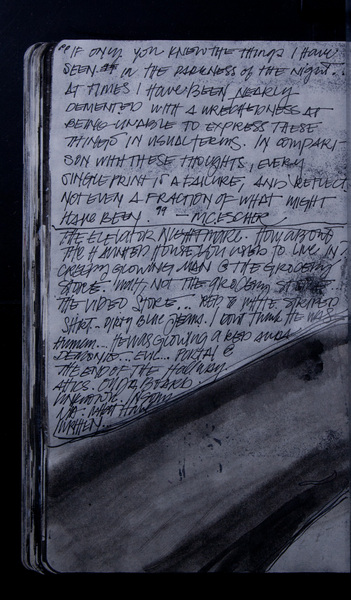 "IF ONLY YOU KNEW THE THINGS I HAVE
SEEN" IN THE DARKNESS OF THE NIGHT...
AT TIMES I HAVE BEEN NEARLY
DEMENTED WITH A WRECHEDNESS AT
BEING UNABLE TO EXPRESS THESE
THINGS IN VISUAL TERMS. IN COMPARI-
SON WITH THESE THOUGHTS, EVERY
SINGLE PRINT IS A FAILURE, AND REFLECTS
NOT EVEN A FRACTION OF WHAT MIGHT
HAVE BEEN." - MC ESCHER
THE ELEVATOR NIGHTMARE. HOW ABOUT
THE HAUNTED HOUSE YOU USED TO LIVE IN?
CREEPY GLOWING MAN @ THE GROCERY
STORE. WAIT, NOT THE GROCERY STORE
THE VIDEO STORE... RED & WHITE STRIPED
SHIRT... DIRTY BLUE JEANS. I DON'T THINK HE WAS
HUMAN... HE WAS GLOWING A RED AURA
DEMONIC... EVIL... PORTAL @
THE END OF THE HALLWAY.
ATTICS. OUIJA BOARD.
WHAT HAVE